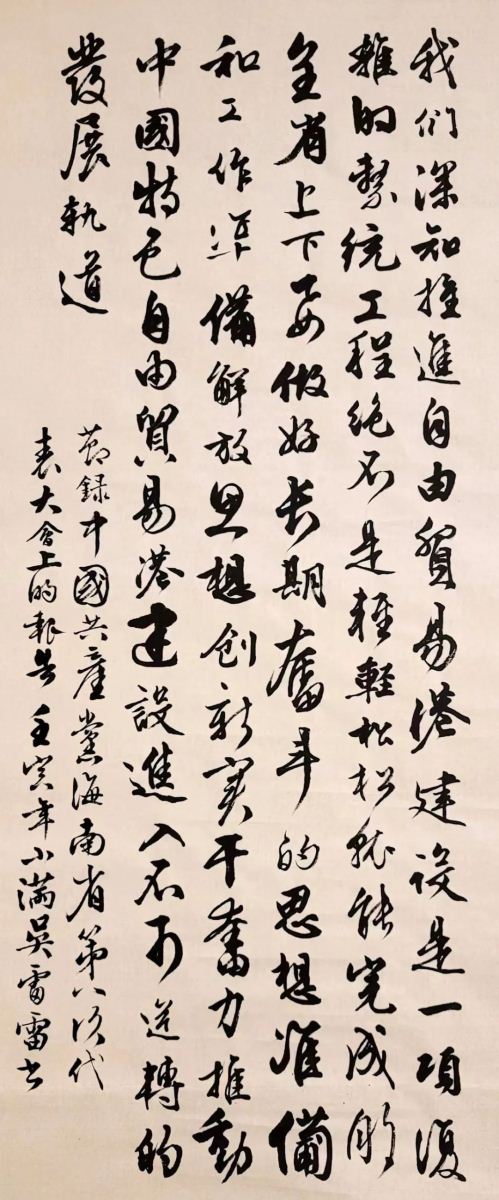 我们深知推進自由貿易港建设是一項復
雜的繫统工程绝不是輕輕松松就能完成的
全省上下要做好长期奮斗的思想准備
和工作準備解放思想创新实干奮力推動
中國特色自由貿易港建設進入不可逆轉的
發展軌道
節録中國共產黨海南省第八次代
表大會上的報告壬寅年小满吴雷雷书